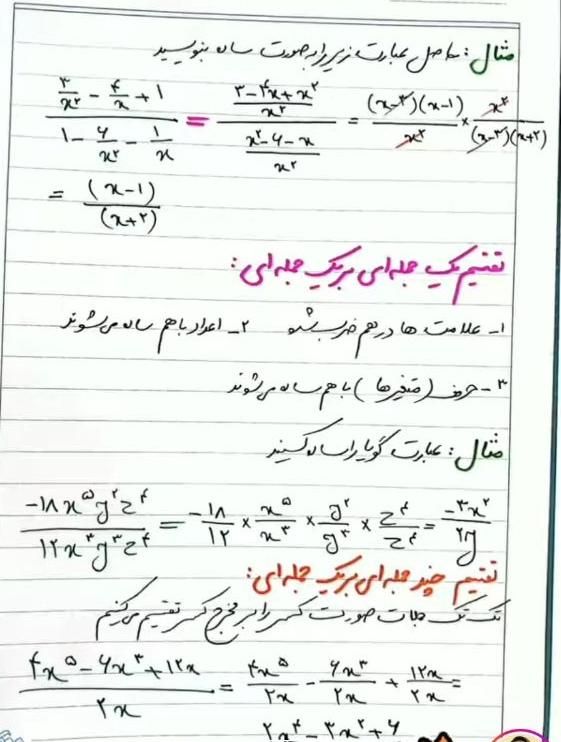 مثال: حاصل عبارت زیر را به صورت ساده بنویسید
(۳/x² - ۴/x + ۱) / (۱ - ۶/x² - ۱/x) = ((۳-۴x+x²)/x²) / ((x²-۶-x)/x²) = (x-۳)(x-۱)/x² × x²/(x-۳)(x+۲)
= (x-۱)/(x+۲)
تقسیم یک جمله ای بر یک جمله ای:
۱- علامت ها در هم ضرب بشه ۲- اعداد با هم ساده می شوند
۳- حرف (متغیرها) با هم ساده می شوند
مثال: عبارت گویا را ساده کنید
-۱۸x⁵y²z⁴ / ۱۲x³y³z⁴ = -۱۸/۱۲ × x⁵/x³ × y²/y³ × z⁴/z⁴ = -۳x²/۲y
تقسیم چند جمله ای بر یک جمله ای:
تک تک جملات صورت کسر را بر مخرج کسر تقسیم می کنیم
(۴x⁵ - ۶x³ + ۱۲x) / ۲x = ۴x⁵/۲x - ۶x³/۲x + ۱۲x/۲x =
۲x⁴ - ۳x² + ۶